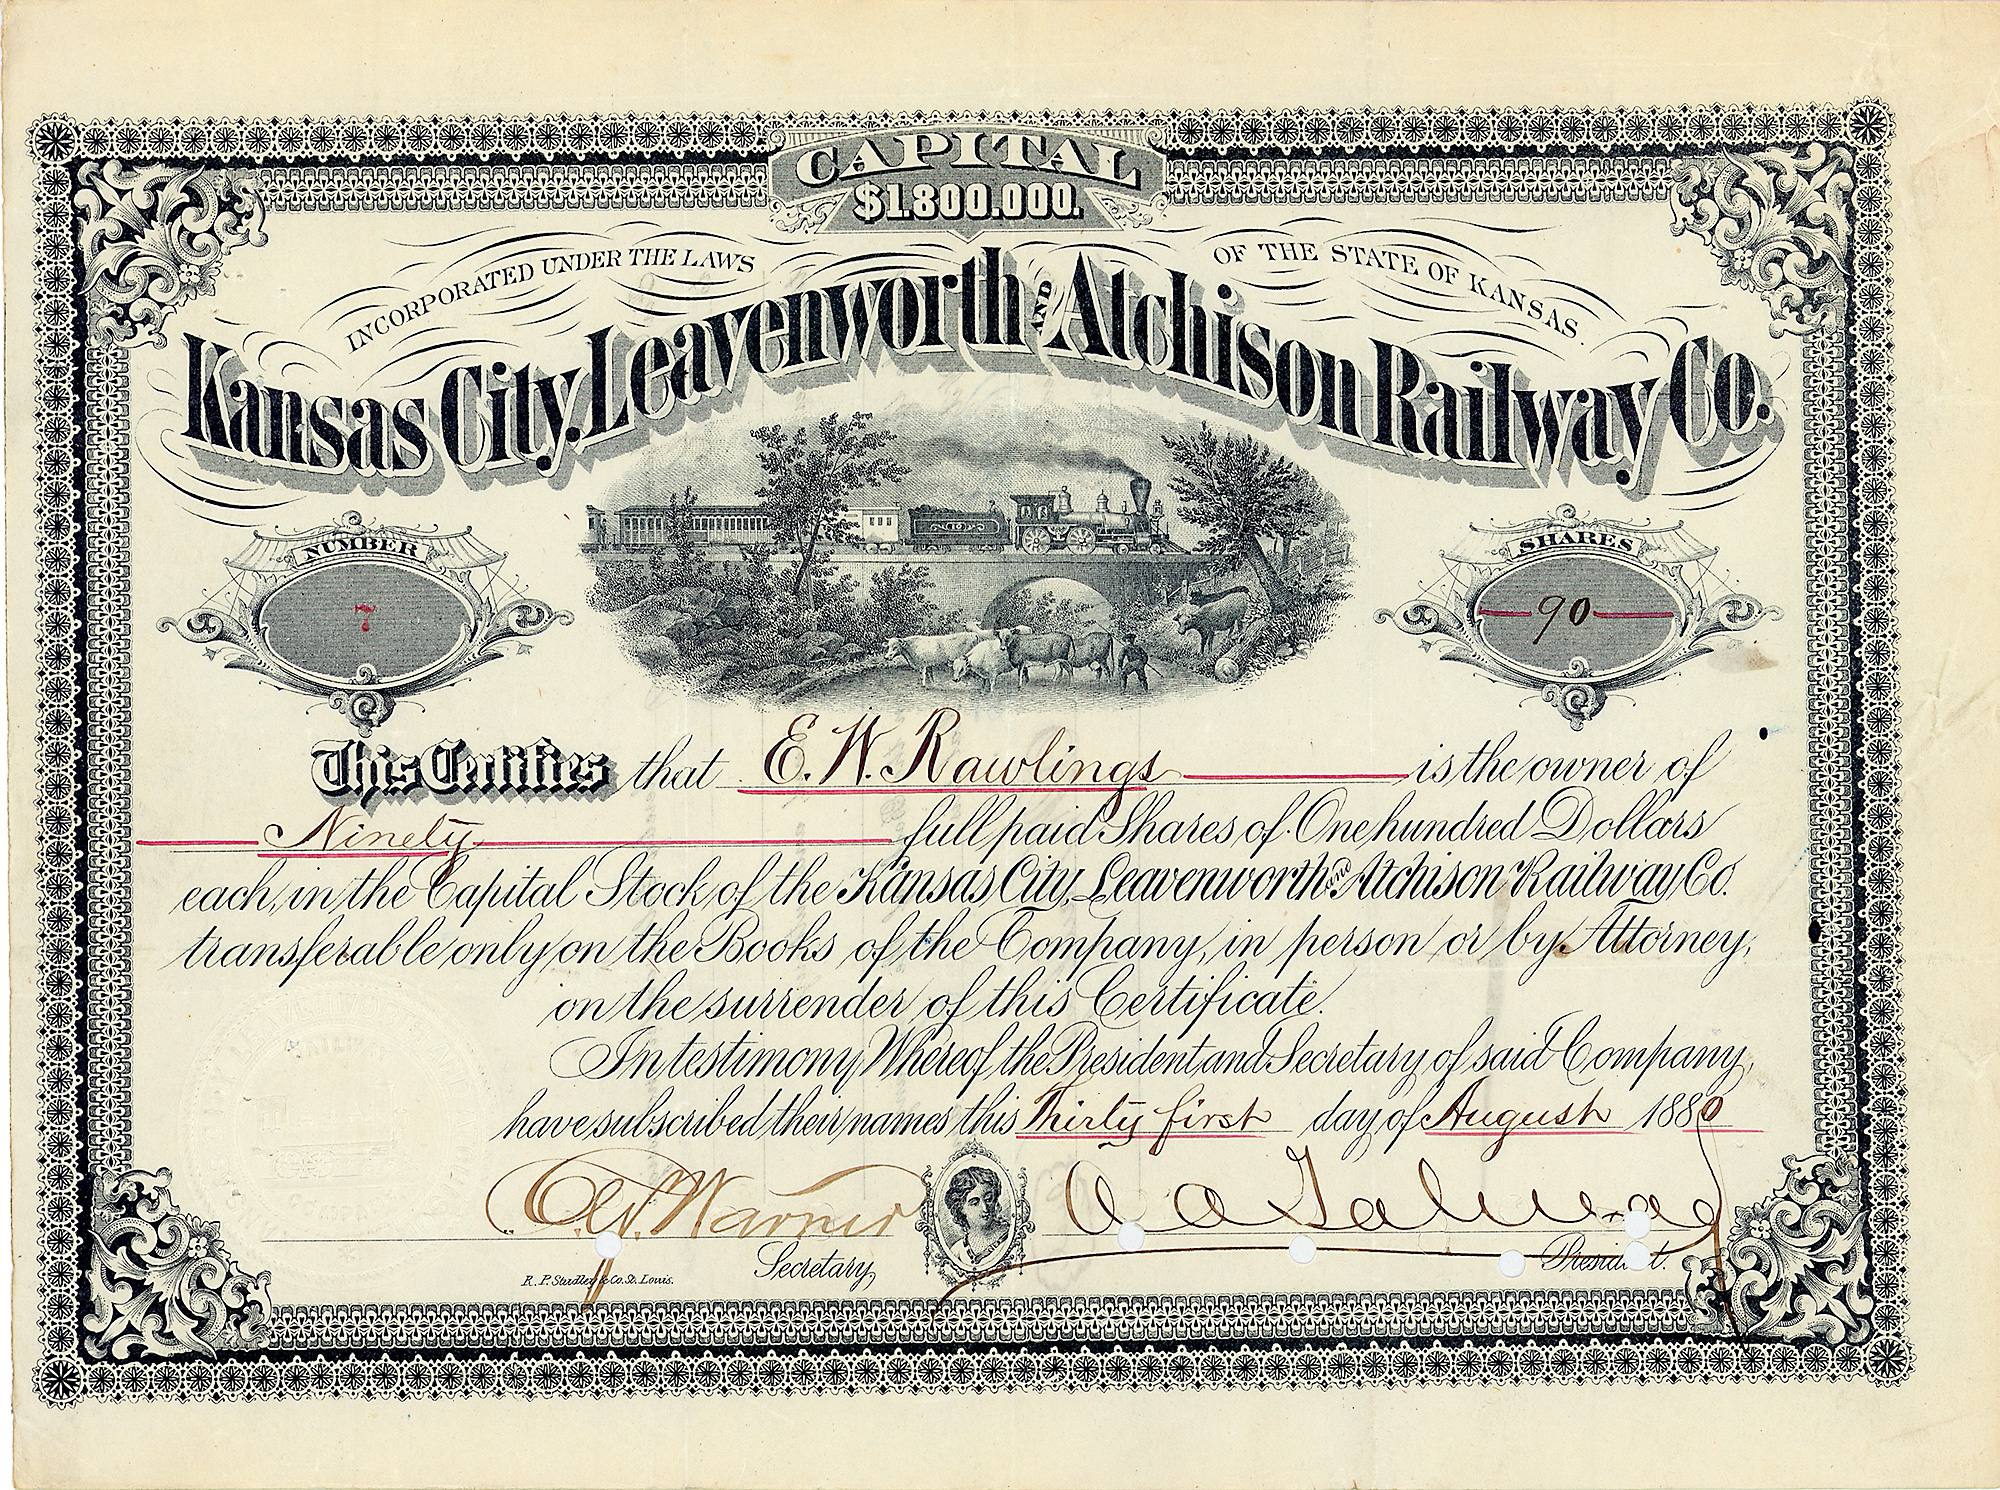 CAPITAL
$1.800.000.
INCORPORATED UNDER THE LAWS OF THE STATE OF KANSAS.
Kansas City, Leavenworth AND Atchison Railway Co.
NUMBER
7
SHARES
90
This Certifies that E. W. Rawlings is the owner of
Ninety full paid Shares of One hundred Dollars
each, in the Capital Stock of the Kansas City, Leavenworth and Atchison Railway Co.
transferable only on the Books of the Company, in person or by Attorney,
on the surrender of this Certificate.
In testimony Whereof the President and Secretary of said Company,
have subscribed their names this Thirty first day of August 1880
RAILWAY
Warner
Secretary,
President.
R. P. Studley & Co. St. Louis.